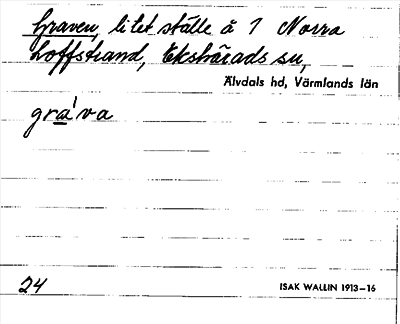 Graven, litet ställe å 1 Norra
Loffstrand, Ekshärads sn,
Älvdals hd, Värmlands län
gra'va
24
ISAK WALLIN 1913–16